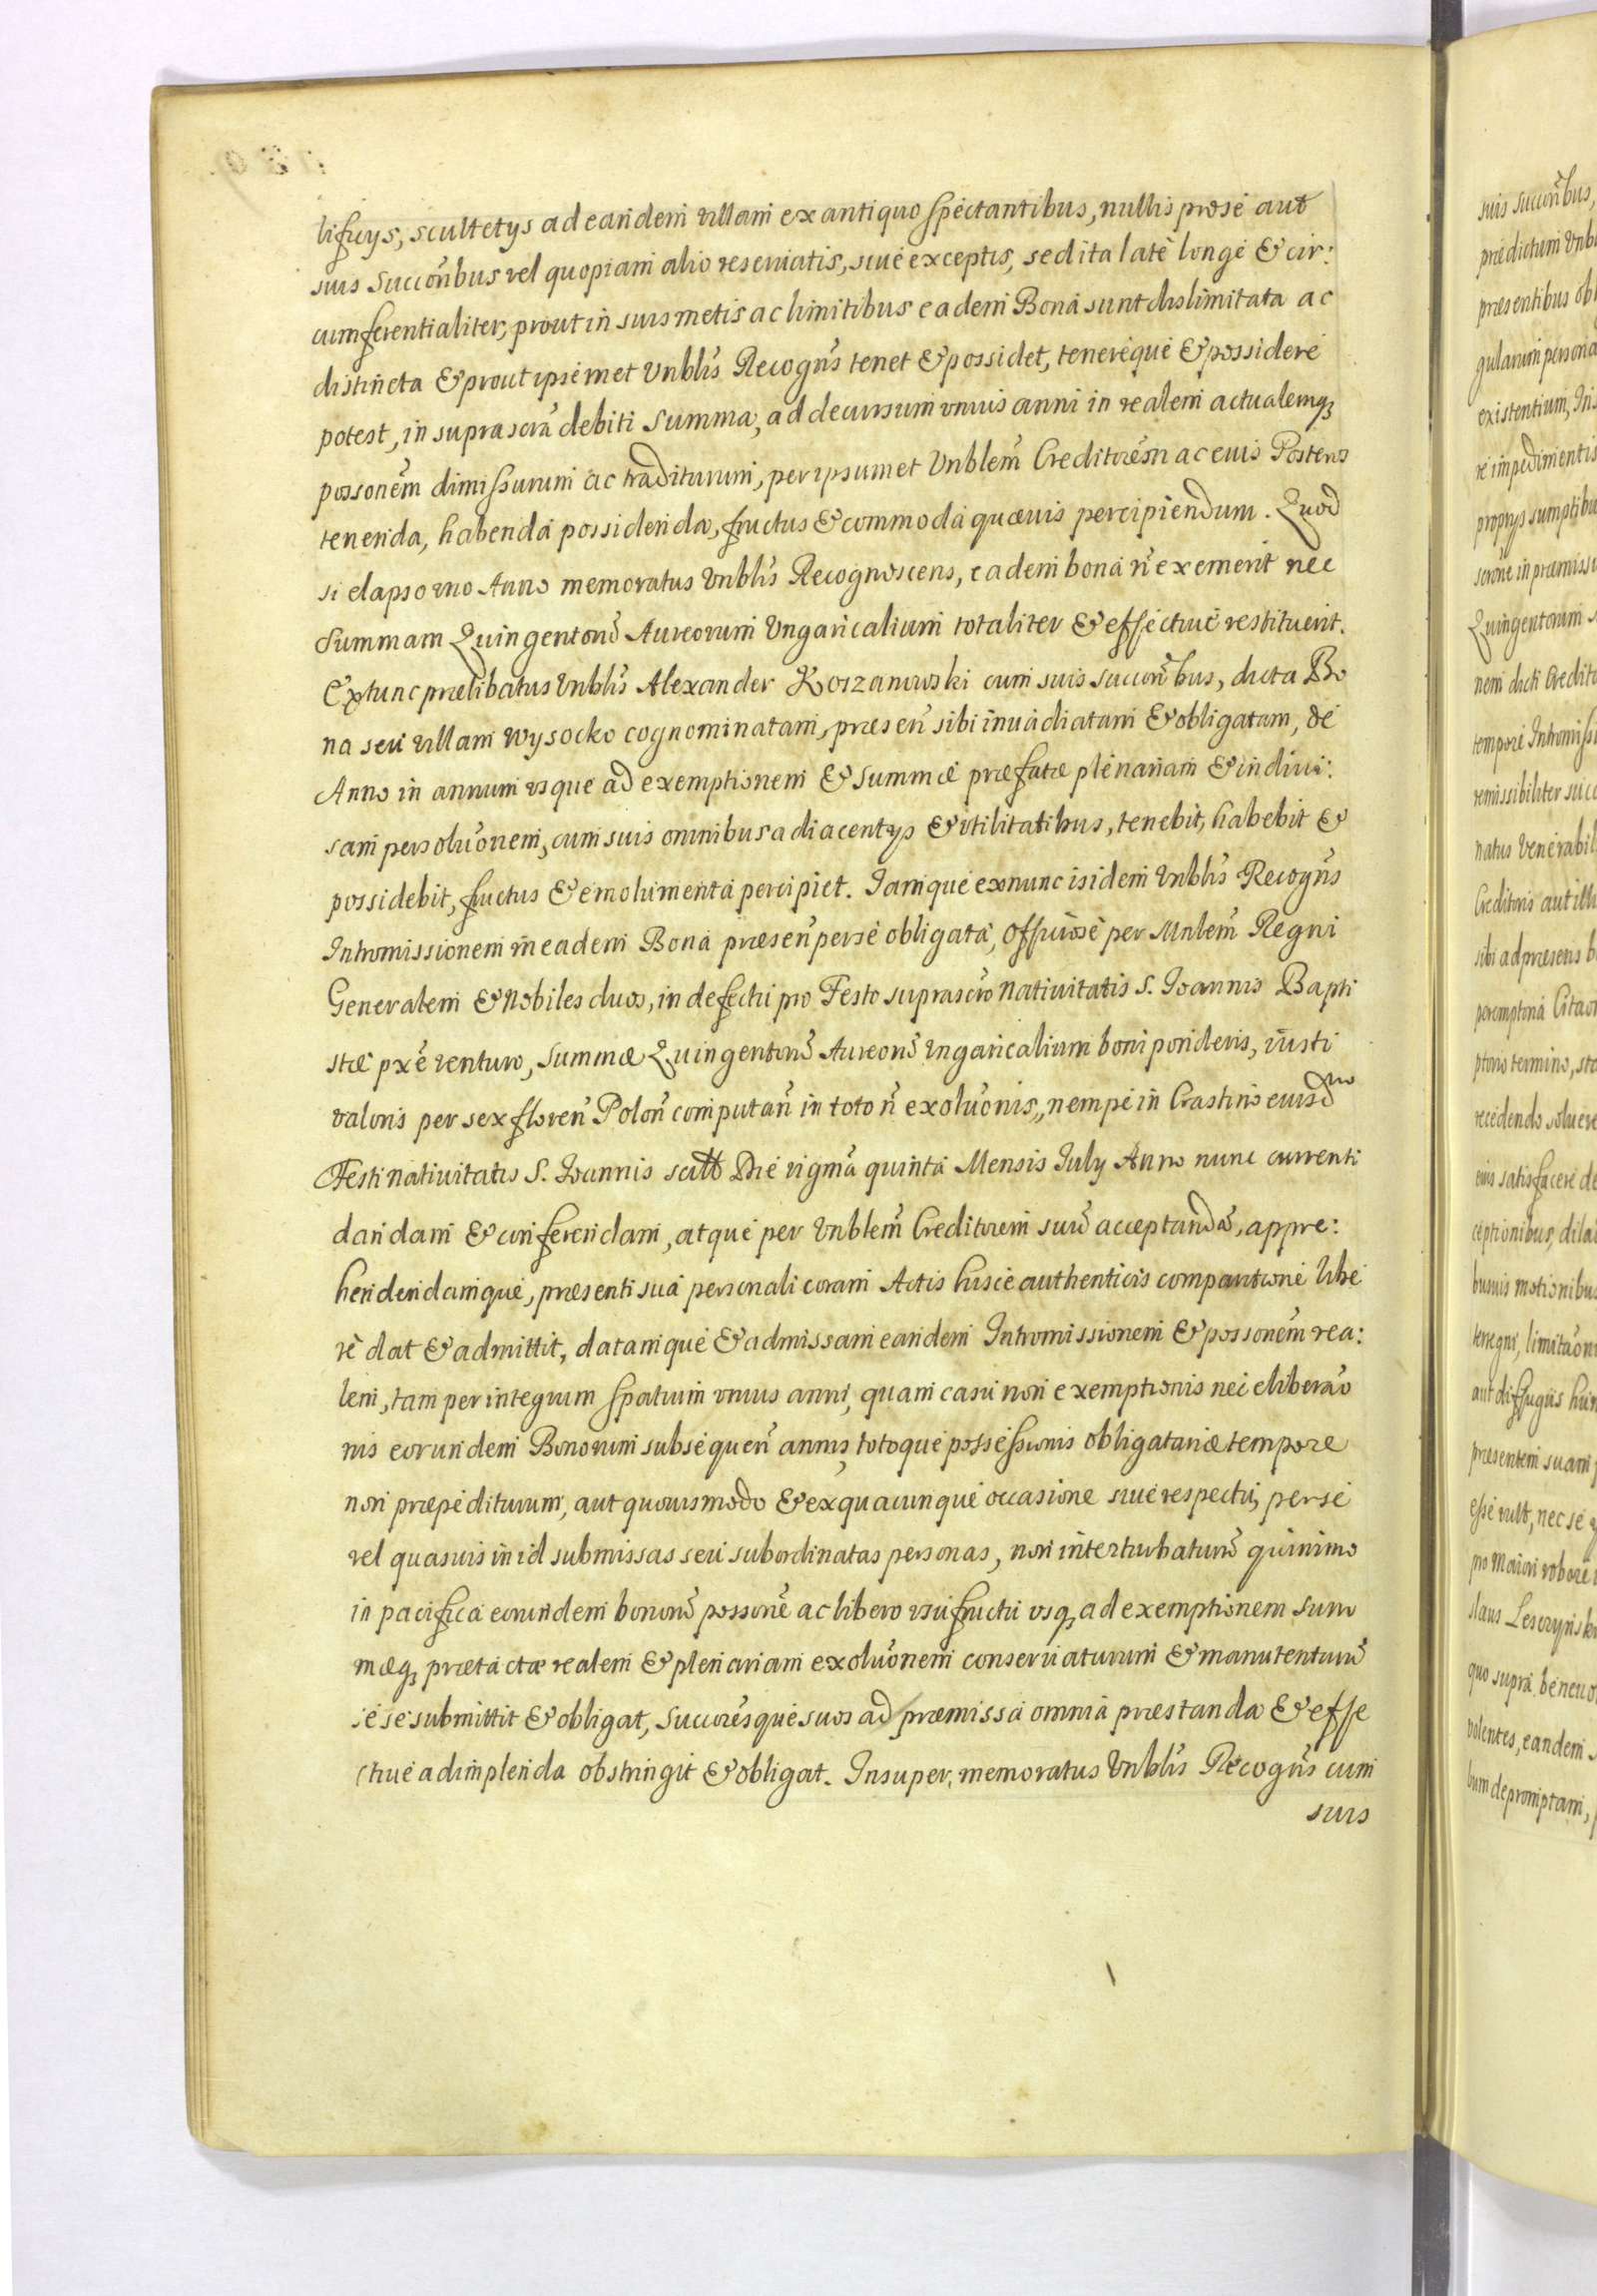 lificijs, scultetijs ad eandem villam ex antiquo spectantibus, nullis pro se aut
suis Succoribus vel quopiam alio reservatis, siue exceptis, sed ita late longe & cir:
cumferentialiter, prout in suis metis ac limitibus eadem Bona sunt dislimitata ac
distincta & prout ipsemet Vnblis Recogns tenet & possidet, tenereque & possidere
potest, in suprascra debiti Summa, ad decursum vnius anni in realem actualemq3
possonem dimissurum ac traditurum, per ipsumet Vnblem Creditorem ac eius Posteros
tenenda, habenda possidenda, fructus & commoda quæuis percipiendum. Quod
si elapso vno Anno memoratus Vnblis Recognoscens, eadem bona n exemerit nec
Summam Quingentoru Aureorum Vngaricalium totaliter & effectiue restituerit.
Extunc prælibatus Vnblis Alexander Korzanowski cum suis succoribus, dicta Bo
na seu villam Wysocko cognominatam, præsen sibi inuadiatam & obligatam, de
Anno in annum vsque ad exemptionem & summæ præfatæ plenariam & indiui:
sam persoluonem, cum suis omnibus adiacentijs & vtilitatibus, tenebit, habebit &
possidebit, fructus & emolumenta percipiet. Iamque exnunc isidem Vnblis Recogns
Intromissionem in eadem Bona præsen per se obligata, officiose per Mnlem Regni
Generalem & Nobiles duos, in defectu pro Festo suprascro Natiuitatis S. Ioannis Bapti
stæ pxe venturo, summæ Quingentoru Aureoru Vngaricalium boni ponderis, iusti
valoris per sex floren Polon computan in toto n exoluonis, nempe in Crastino eiusdmo
Festi Natiuitatis S. Ioannis scilt Die vigma quinta Mensis Iulij Anno nunc currenti
dandam & conferendam, atque per Vnblem Creditorem suu acceptanda, appre:
hendendamque, præsenti sua personali coram Actis hisce authenticis comparitione libe
re dat & admittit, datamque & admissam eandem Intromissionem & possonem rea:
lem, tam per integrum spatium vnius anni, quam casu non exemptionis nec eliberao
nis eorundem Bonorum subsequen annis, totoque possessionis obligatoriæ tempore
non præpediturum, aut quouismodo & ex quacunque occasione siue respectu, per se
vel quasuis in id submissas seu subordinatas personas, non interturbaturu quinimo
in pacifica eorundem bonoru possone ac libero vsufructu vsq3 ad exemptionem Sum
mæq3 prætactæ realem & plenariam exoluonem conseruaturum & manutenturu
se se submittit & obligat, succoresque suos ad præmissa omnia præstanda & effe
ctiue adimplenda obstringit & obligat. Insuper, memoratus Vnblis Recogns cum
suis